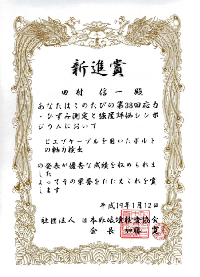 新進賞
田村 信一 殿
あなたはこのたびの第38回応力
・ひずみ測定と強度評価シンポ
ジウムにおいて
ピエゾケーブルを用いたボルト
の軸力検出
の発表が優秀な成績を収められま
した
よってその栄誉をたたえこれを賞
します
平成19年1月12日
社団法人 日本非破壊検査協会
会長 加藤 寛